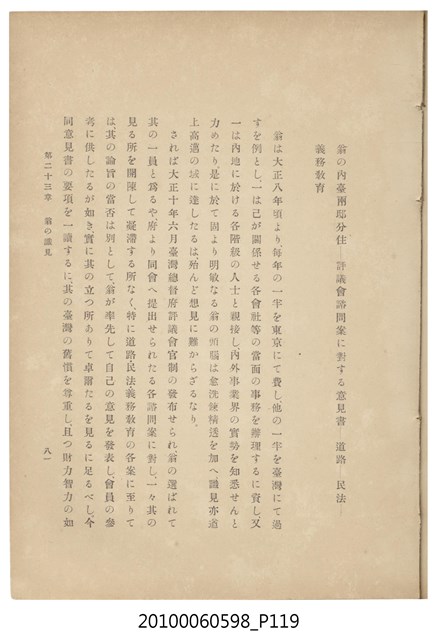 翁の內臺兩邸分住──評議會諮問案に對する意見書──道路──民法──
義務敎育
翁は大正八年頃より、每年の一半を東京にて費し、他の一半を臺灣にて過
すを例とし、一は己が關係せる各會社等の當面の事務を辦理するに資し、又
一は內地に於ける各階級の人士と親接し、內外事業界の實勢を知悉せんと
力めたり、是に於て固より明敏なる翁の頭腦は愈洗練精透を加へ、識見亦遒
上高邁の域に達したるは、殆んど想見に難からざるなり。
されば大正十年六月臺灣總督府評議會官制の發布せられ、翁の選ばれて
其の一員と爲るや、府より同會へ提出せられたる各諮問案に對し、一々其の
見る所を開陳して凝滯する所なく、特に道路、民法、義務敎育の各案に至りて
は、其の論旨の當否は別として、翁が率先して自己の意見を發表し、會員の參
考に供したるが如き、實に其の立つ所ありて卓爾たるを見るに足るべし、今
同意見書の要項を一讀するに、其の臺灣の舊慣を尊重し、且つ財力智力の如
第二十三章 翁の識見
八一
20100060598_P119